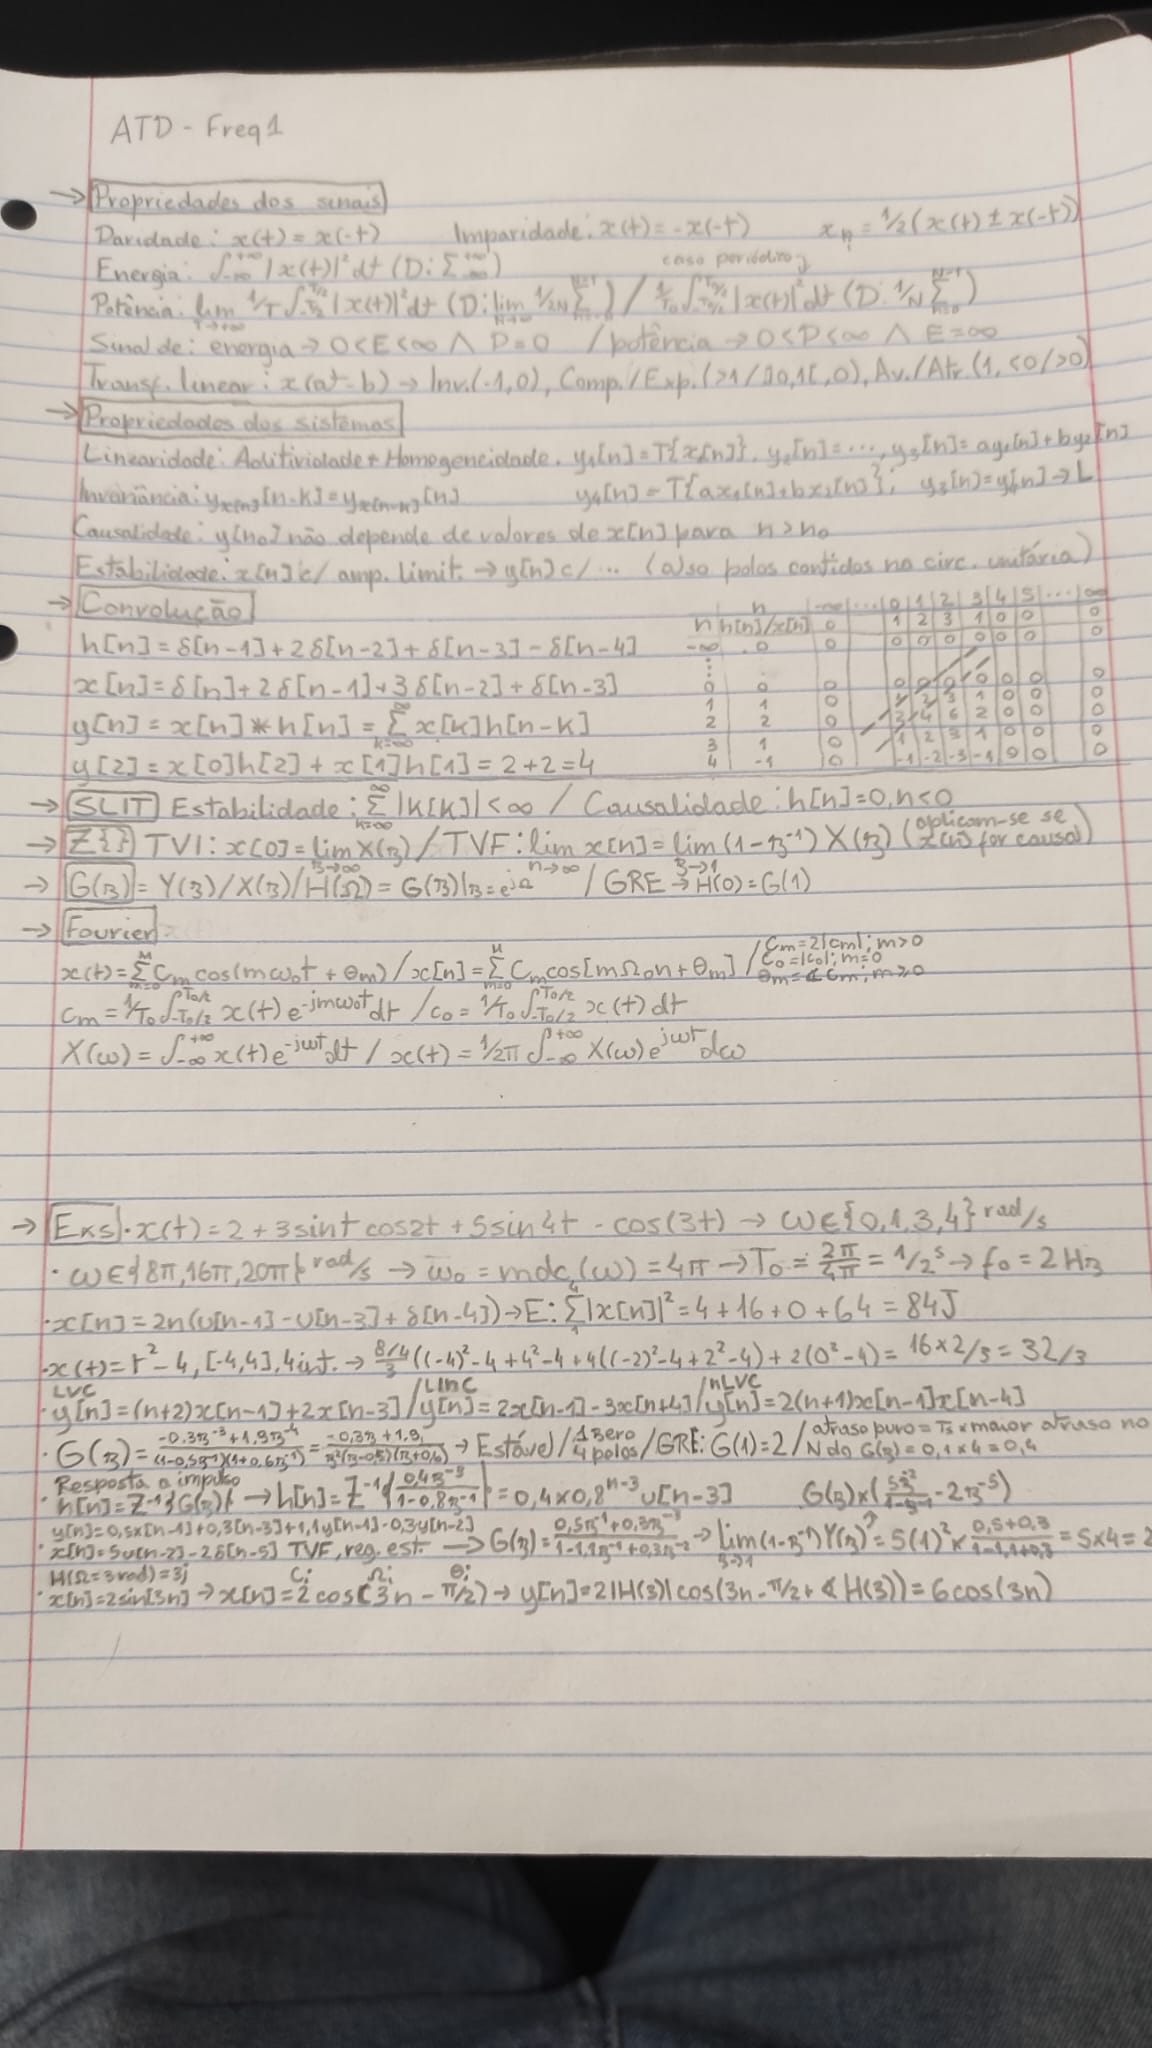 ATD - Freq1
→ Propriedades dos sinais
Paridade: x(t) = x(-t) Imparidade: x(t) = -x(-t) x = 1/2(x(t) ± x(-t))
Energia: ∫-∞^+∞ |x(t)|² dt (D: Σ-∞^+∞) caso periódico
Potência: lim T→+∞ 1/T ∫-T/2^T/2 |x(t)|² dt (D: lim N→∞ 1/2N Σ) / 1/T0 ∫-T0/2^T0/2 |x(t)|² dt (D: 1/N Σ n=0^N-1)
Sinal de: energia → 0<E<∞ ∧ P=0 / potência → 0<P<∞ ∧ E=∞
Transf. linear: x(at-b) → Inv.(-1,0), Comp./Exp.(>1/]0,1[,0), Av./Atr.(1,<0/>0)
→ Propriedades dos sistemas
Linearidade: Aditividade + Homogeneidade. y1[n]=T{x1[n]}, y2[n]=..., y3[n]=ay1[n]+by2[n]
Invariância: yx[n][n-k]=yx[n-k][n] y4[n]=T{ax1[n]+bx2[n]}; y3[n]=y4[n]→L
Causalidade: y[n0] não depende de valores de x[n] para n>n0
Estabilidade: x[n] c/ amp. limit. → y[n] c/ ... (also polos contidos na circ. unitária)
→ Convolução
h[n]=δ[n-1]+2δ[n-2]+δ[n-3]-δ[n-4]
x[n]=δ[n]+2δ[n-1]+3δ[n-2]+δ[n-3]
y[n]=x[n]*h[n]=Σ k=-∞^∞ x[k]h[n-k]
y[2]=x[0]h[2]+x[1]h[1]=2+2=4
n -∞ ... 0 1 2 3 4 5 ... ∞
n h[n]/x[n] 0 1 2 3 1 0 0 0
-∞ 0 0 0 0 0 0 0 0 0
⋮
0 0 0 0 0 0 0 0 0 0
1 1 0 1 2 3 1 0 0 0
2 2 0 4 6 2 0 0 0
3 1 0 1 2 3 1 0 0 0
4 -1 0 -1 -2 -3 -1 0 0 0
→ SLIT Estabilidade: Σ k=-∞^∞ |h[k]|<∞ / Causalidade: h[n]=0, n<0
→ Z{} TVI: x[0]=lim z→∞ X(z) / TVF: lim n→∞ x[n]=lim z→1 (1-z⁻¹)X(z) (aplicam-se se x[n] for causal)
→ G(z) = Y(z)/X(z) / H(Ω)=G(z)|z=e^jΩ / GRE → H(0)=G(1)
→ Fourier
x(t)=Σ m=0^M Cm cos(mω0t+θm) / x[n]=Σ m=0^M Cm cos[mΩ0n+θm] / Cm=2|cm|; m>0 C0=|c0|; m=0 θm=∢cm; m≥0
cm=1/T0 ∫-T0/2^T0/2 x(t)e^-jmω0t dt / c0=1/T0 ∫-T0/2^T0/2 x(t)dt
X(ω)=∫-∞^+∞ x(t)e^-jωt dt / x(t)=1/2π ∫-∞^+∞ X(ω)e^jωt dω
→ Exs • x(t)=2+3sint cos2t+5sin4t-cos(3t) → ω∈{0,1,3,4} rad/s
• ω∈{8π,16π,20π} rad/s → ω0=mdc(ω)=4π → T0=2π/4π=1/2 s → f0=2Hz
• x[n]=2n(u[n-1]-u[n-3]+δ[n-4]) → E: Σ 1^4 |x[n]|²=4+16+0+64=84J
• x(t)=t²-4, [-4,4], 4 int. → (8/4)/3((-4)²-4+4²-4+4((-2)²-4+2²-4)+2(0²-4)=16×2/3=32/3
LVC / LInC / nLVC
• y[n]=(n+2)x[n-1]+2x[n-3] / y[n]=2x[n-1]-3x[n+4] / y[n]=2(n+1)x[n-1]x[n-4]
• G(z)=(-0,3z⁻³+1,9z⁻⁴)/((1-0,5z⁻¹)(1+0,6z⁻¹))=(-0,3z+1,9)/(z²(z-0,5)(z+0,6)) → Estável / 1 zero 4 polos / GRE: G(1)=2 / atraso puro = Ts × maior atraso no N do G(z)=0,1×4=0,4
Resposta a impulso
• h[n]=Z⁻¹{G(z)} → h[n]=Z⁻¹{0,4z⁻³/(1-0,8z⁻¹)}=0,4×0,8^n-3 u[n-3] G(z)×(5z⁻²/(1-z⁻¹)-2z⁻⁵)
y[n]=0,5x[n-1]+0,3[n-3]+1,1y[n-1]-0,3y[n-2]
• x[n]=5u[n-2]-2δ[n-5] TVF, reg. est. → G(z)=(0,5z⁻¹+0,3z⁻³)/(1-1,1z⁻¹+0,3z⁻²) → lim z→1 (1-z⁻¹)Y(z)=5(1)²×(0,5+0,3)/(1-1,1+0,3)=5×4=2
H(Ω=3rad)=3j Ci Ωi θi
• x[n]=2sin[3n] → x[n]=2cos(3n-π/2) → y[n]=2|H(3)|cos(3n-π/2+∢H(3))=6cos(3n)